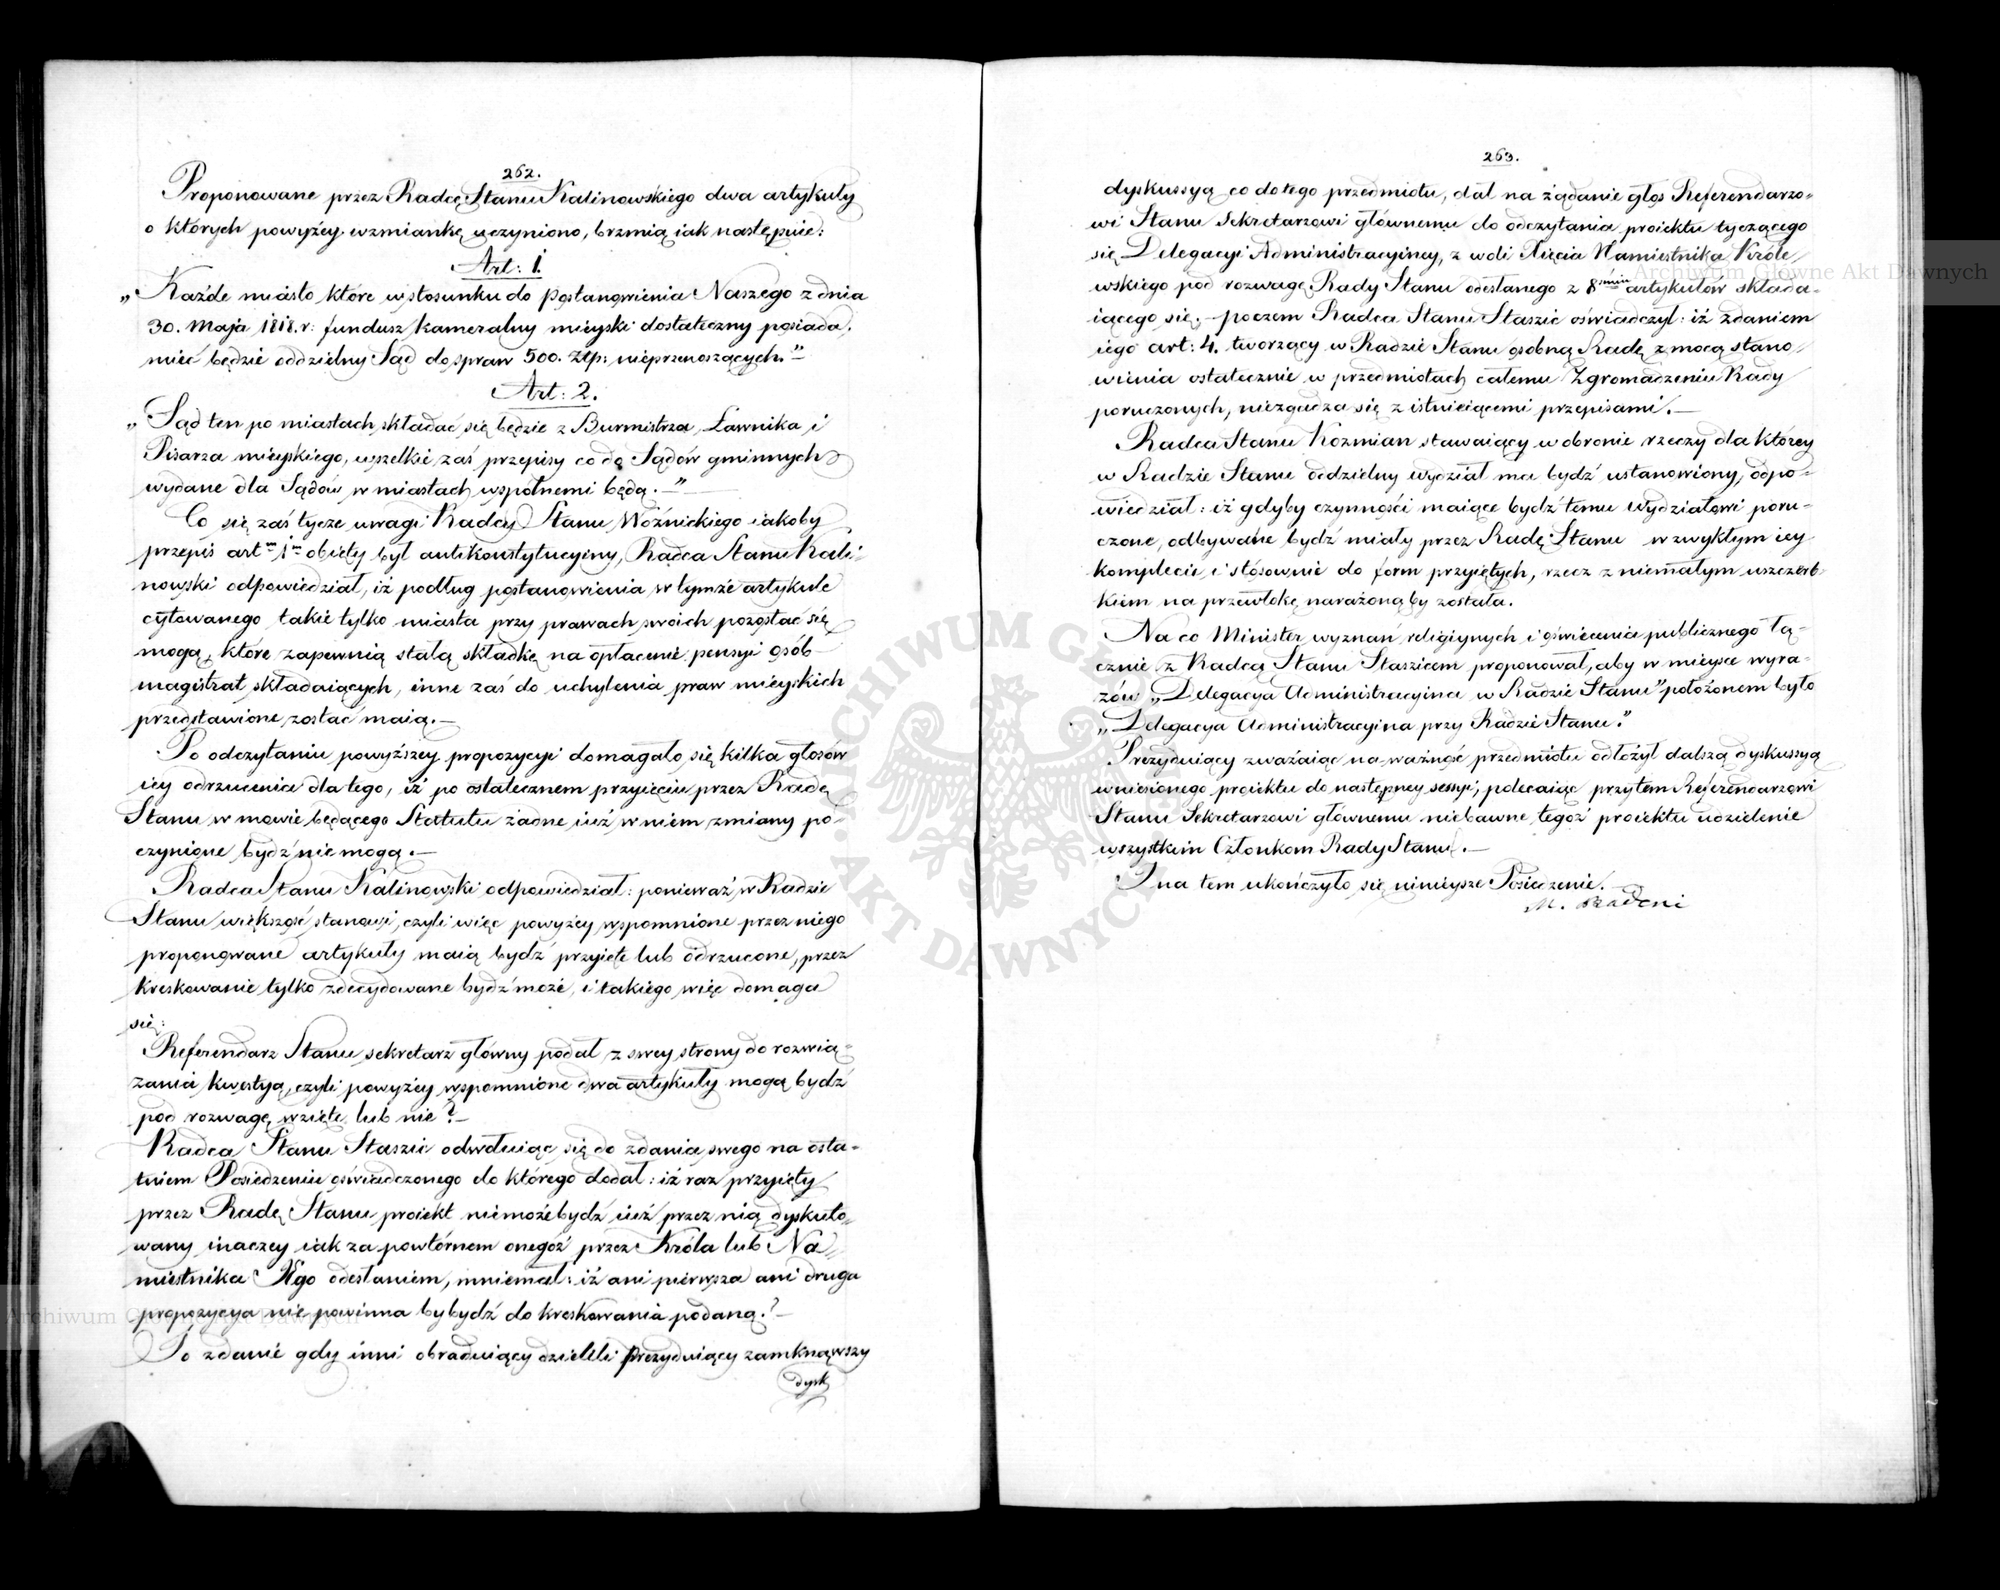 262.
Proponowane przez Radcę Stanu Kalinowskiego dwa artykuły
o których powyżey wzmiankę uczyniono, brzmią iak następuie:
Art: 1.
„Każde miasto które w stosunku do postanowienia Naszego z dnia
30. Maja 1818. r: fundusz kameralny mieyski dostateczny posiada,
mieć będzie oddzielny Sąd do spraw 500. Złp: nieprzenoszących."
Art: 2.
„Sąd ten po miastach składać się będzie z Burmistrza, Ławnika i
Pisarza mieyskiego, wszelkie zaś przepisy co do Sądów gminnych
wydane dla Sądów w miastach wspólnemi będą.—"
Co się zaś tycze uwagi Radcy Stanu Woźnickiego iakoby
przepis art^m 1^m obięty był antikonstytucyiny, Radca Stanu Kali-
nowski odpowiedział, iż podług postanowienia w tymże artykule
cytowanego takie tylko miasta przy prawach swoich pozostać się
mogą, które zapewnią stałą składkę na opłacenie pensyi osób
magistrat składaiących, inne zaś do uchylenia praw mieyskich
przedstawione zostać maią.—
Po odczytaniu powyższey propozycyi domagało się kilka głosów
iey odrzucenia dla tego, iż po ostatecznem przyięciu przez Radę
Stanu w mowie będącego Statutu żadne iuż w niem zmiany po-
czynione bydź nie mogą.—
Radca Stanu Kalinowski odpowiedział: ponieważ w Radzie
Stanu większość stanowi, czyli więc powyżey wspomnione przez niego
proponowane artykuły maią bydź przyięte lub odrzucone, przez
kreskowanie tylko zdecydowane bydź może, i takiego więc domaga
się:
Referendarz Stanu sekretarz główny podał z swey strony do rozwią-
zania kwestyą, czyli powyżey wspomnione dwa artykuły mogą bydź
pod rozwagę wzięte lub nie?—
Radca Stanu Staszic odwołuiąc się do zdania swego na osta-
tniem Posiedzeniu oświadczonego do którego dodał: iż raz przyięty
przez Radę Stanu proiekt nie może bydź iuż przez nią dyskuto-
wany inaczey iak za powtórnem onegoż przez Króla lub Na-
miestnika J^go odesłaniem, mniemał: iż ani pierwsza ani druga
propozycya nie powinna by bydź do kreskowania podaną.?—
To zdanie gdy inni obraduiący dzielili Prezyduiący zamknąwszy
dysk
263.
dyskussyą co do tego przedmiotu, dał na żądanie głos Referendarzo-
wi Stanu Sekretarzowi głównemu do odczytania proiektu tyczącego
się Delegacyi Administracyiney, z woli Xięcia Namiestnika Króle-
wskiego pod rozwagę Rady Stanu odesłanego z 8^miu artykułów składa-
iącego się; poczem Radca Stanu Staszic oświadczył: iż zdaniem
iego art: 4. tworzący w Radzie Stanu osobną Radę z mocą stano-
wienia ostatecznie w przedmiotach całemu Zgromadzeniu Rady
poruczonych, niezgadza się z istnieiącemi przepisami.—
Radca Stanu Kozmian stawaiący w obronie rzeczy dla którey
w Radzie Stanu oddzielny wydział ma bydź ustanowiony, odpo-
wiedział: iż gdyby czynności maiące bydź temu wydziałowi poru-
czone, odbywane bydź miały przez Radę Stanu w zwykłym iey
komplecie i stósownie do form przyiętych, rzecz z niemałym uszczerb-
kiem na przewłokę narażoną by została.
Na co Minister wyznań religiynych i oświecenia publicznego łą-
cznie z Radcą Stanu Staszicem proponował, aby w mieysce wyra-
zów „Delegacya Administracyina w Radzie Stanu" położonem było
„Delegacya Administracyina przy Radzie Stanu."
Prezyduiący zważaiąc na ważność przedmiotu odłożył dalszą dyskussyą
wniesionego proiektu do następney sessyi, polecaiąc przytem Referendarzowi
Stanu Sekretarzowi głównemu niebawne tegoż proiektu udzielenie
wszystkim Członkom Rady Stanu.—
I na tem ukończyło się ninieysze Posiedzenie.
M. Badeni
Archiwum Główne Akt Dawnych
Archiwum Główne Akt Dawnych
ARCHIWUM GŁÓWNE AKT DAWNYCH